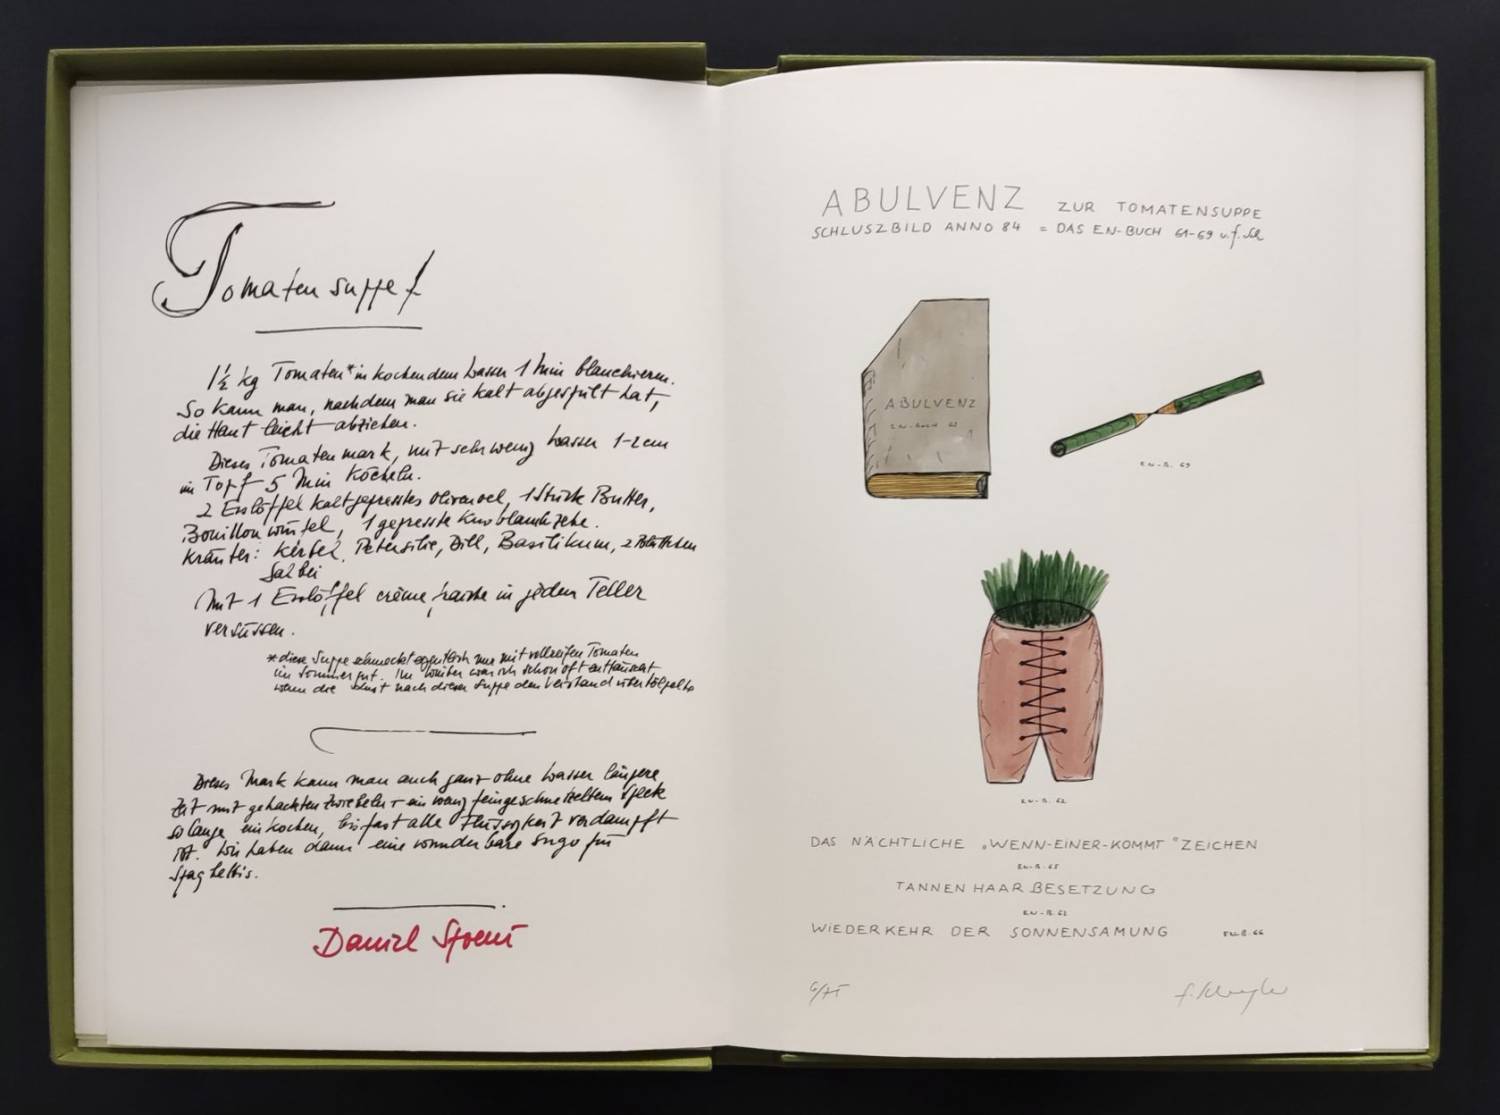 Tomatensuppe f
1½ kg Tomaten* in kochendem Wasser 1 Min blanchieren.
So kann man, nachdem man sie kalt abgespült hat,
die Haut leicht abziehen.
Dieses Tomatenmark, mit sehr wenig Wasser 1-2 cm
im Topf 5 Min Köcheln.
2 Esslöffel kaltgepresstes Olivenoel, 1 Stück Butter,
Bouillonwürfel, 1 gepresste Knoblauchzehe.
Kräuter: Kerbel, Petersilie, Dill, Basilikum, 2 Blättchen
Salbei
Mit 1 Esslöffel crème fraiche in jedem Teller
versüssen.
* diese Suppe schmeckt eigentlich nur mit vollreifen Tomaten
im Sommer gut. Im Winter war ich schon oft enttäuscht
wenn die Lust nach dieser Suppe den Verstand übertölpelte
Dieses Mark kann man auch ganz ohne Wasser längere
Zeit mit gehackten Zwiebeln + ein wenig feingeschnetzeltem Speck
so lange einkochen, bis fast alle Flüssigkeit verdampft
ist. Wir haben dann eine wunderbare Sugo für
Spaghettis.
Daniel Spoerri
ABULVENZ ZUR TOMATENSUPPE
SCHLUSZBILD ANNO 84 = DAS EN-BUCH 61-69 v. f. Sch
ABULVENZ
EN-BUCH 63
EN-B. 69
EN-B. 62
DAS NÄCHTLICHE „WENN-EINER-KOMMT" ZEICHEN
EN-B. 65
TANNENHAARBESETZUNG
EN-B. 62
WIEDERKEHR DER SONNENSAMUNG EN-B. 66
6/75